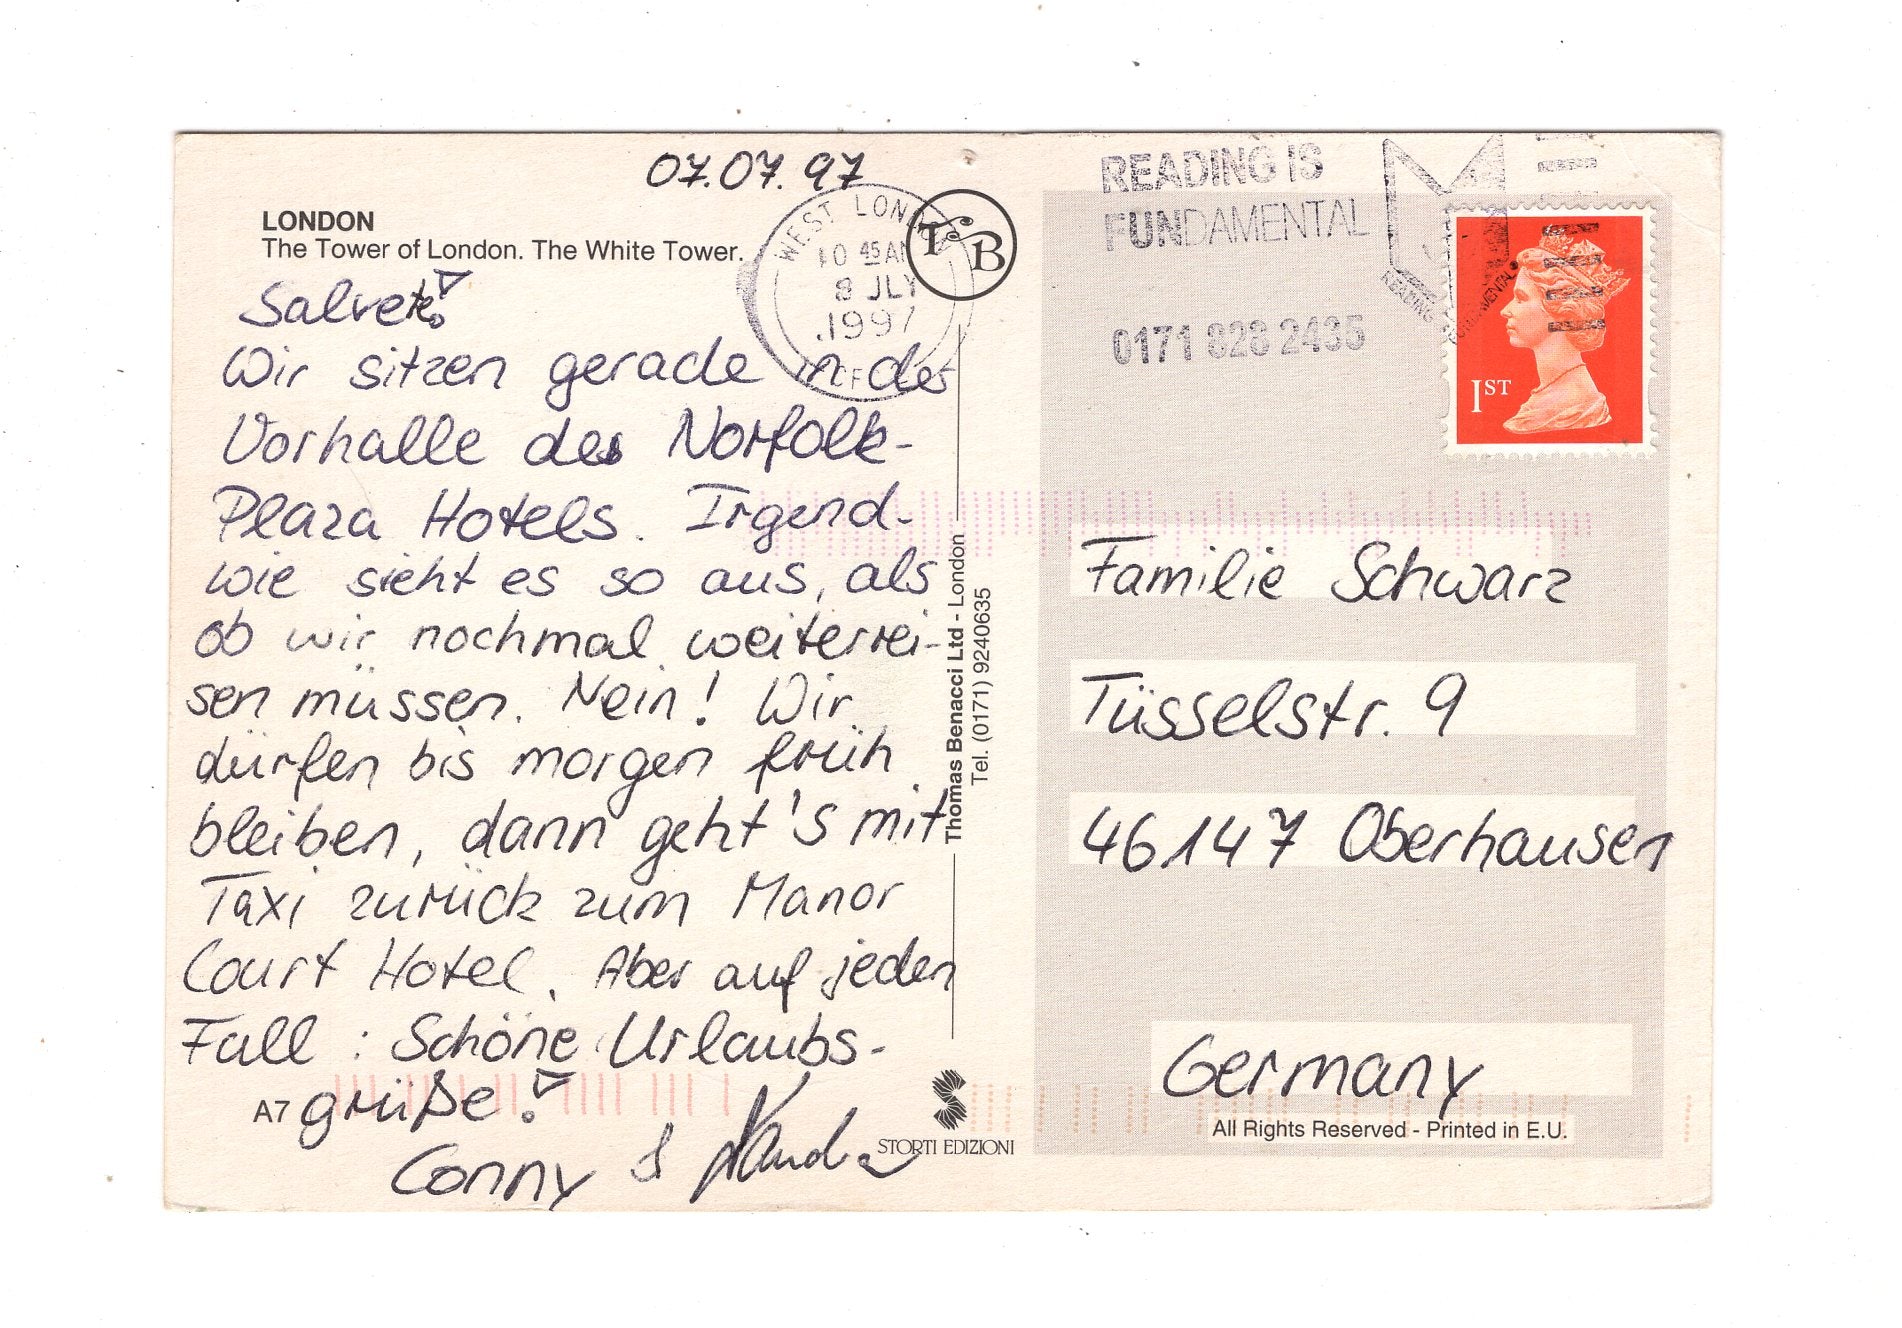 07.07.97
LONDON
The Tower of London. The White Tower.
Salvete!
Wir sitzen gerade in der
Vorhalle des Norfolk-
Plaza Hotels. Irgend-
wie sieht es so aus, als
ob wir nochmal weiterrei-
sen müssen. Nein! Wir
dürfen bis morgen früh
bleiben, dann geht's mit
Taxi zurück zum Manor
Court Hotel. Aber auf jeden
Fall : Schöne Urlaubs-
grüße!
A7
Conny
Thomas Benacci Ltd - London
Tel. (0171) 9240635
STORTI EDIZIONI
TB
WEST LONDON
10 45 AM
8 JLY
1997
READING IS
FUNDAMENTAL
0171 828 2435
READING IS FUNDAMENTAL
1ST
Familie Schwarz
Tüsselstr. 9
46147 Oberhausen
Germany
All Rights Reserved - Printed in E.U.